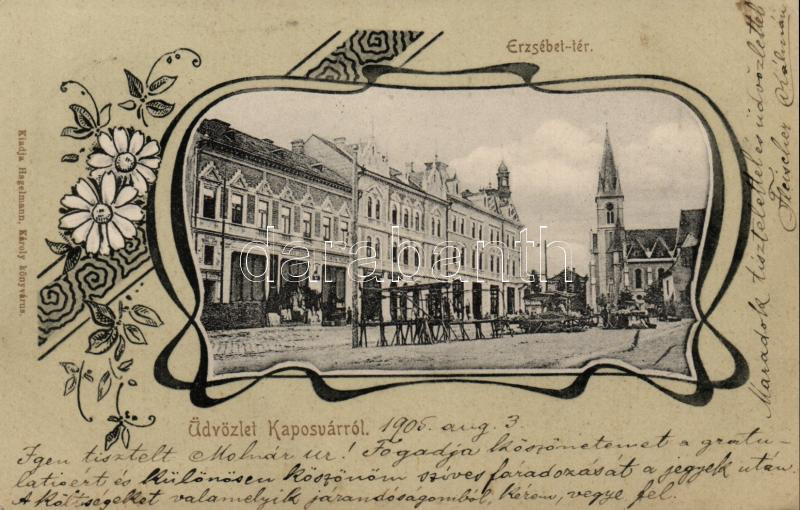 Erzsébet-tér.
Kiadja Hagelmann, Károly könyvárus.
darabanth.com
Üdvözlet Kaposvárról. 1905. aug. 3
Igen tisztelt Molnár ur! Fogadja köszönetemet a gratu-
latioért és különösen köszönöm szíves faradozását a jegyek után.
A költségeket valamelyik járandóságomból, kérem, vegye fel.
Maradok tisztelettel és üdvözlettel
Fleischer Kálmán